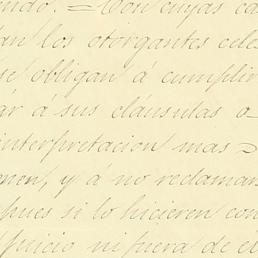 ndo. = Con cuyas ca
an los otorgantes cele
se obligan á cumplir
ar a sus cláusulas o
interpretacion mas =
nen, y a no reclamar
pues si lo hicieren con
juicio ni fuera de el